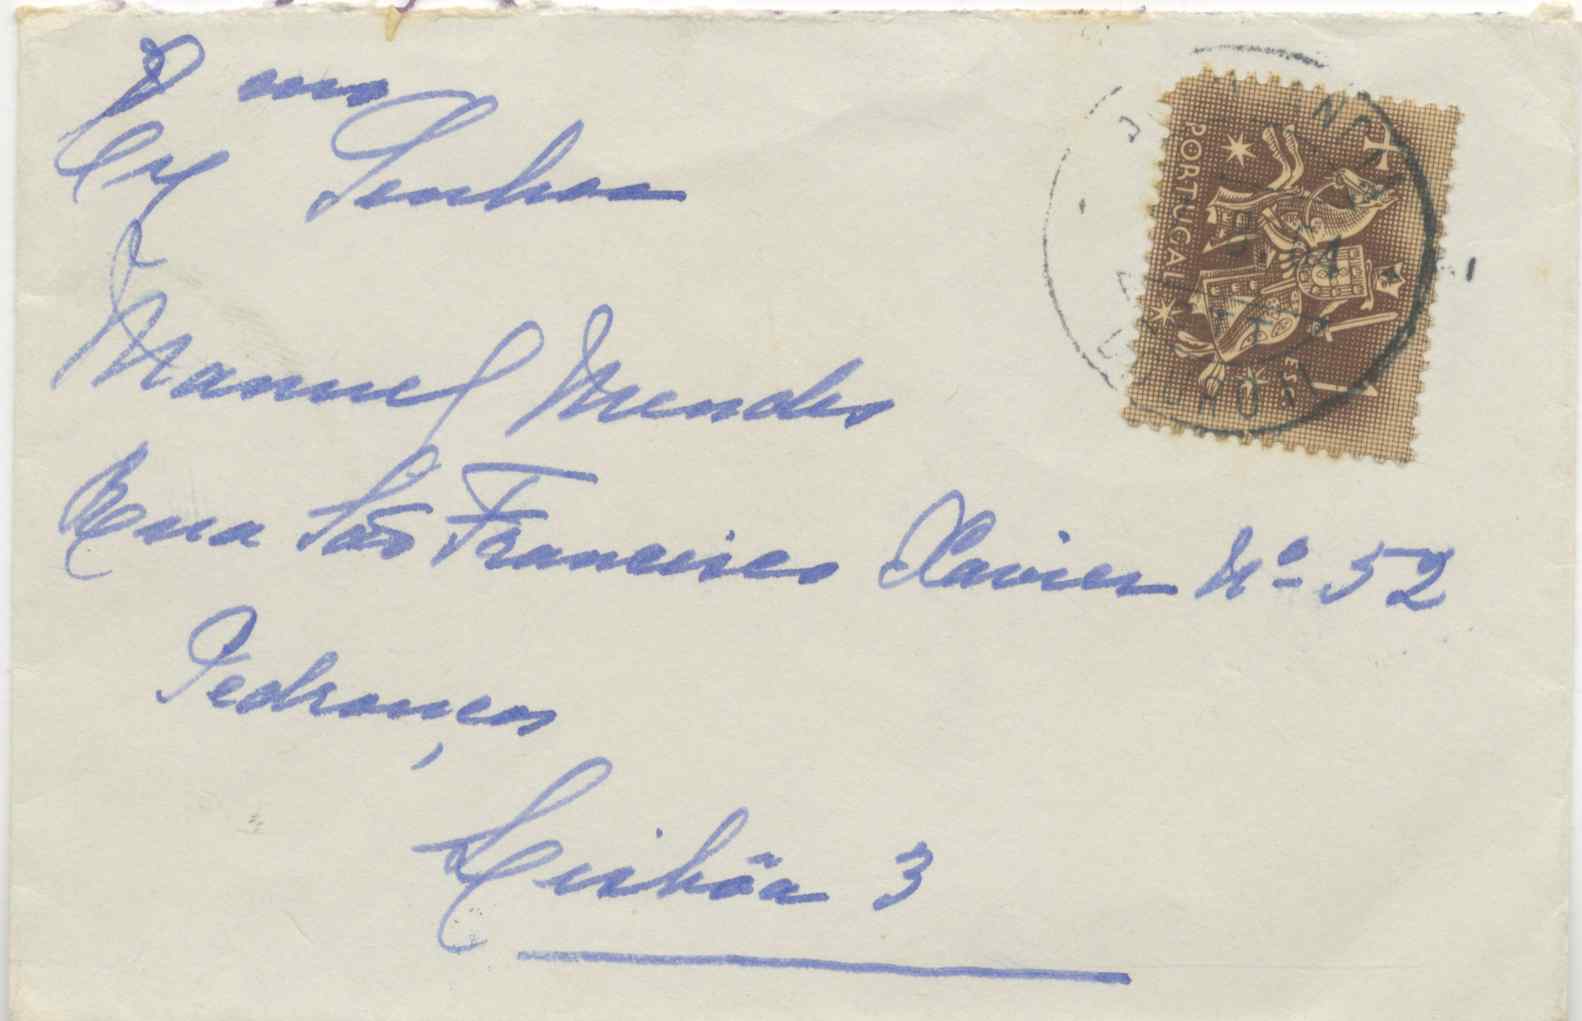 Exmo Senhor
Manuel Mendes
Rua São Francisco Xavier Nº 52
Pedrouços
Lisbôa 3
PORTUGAL